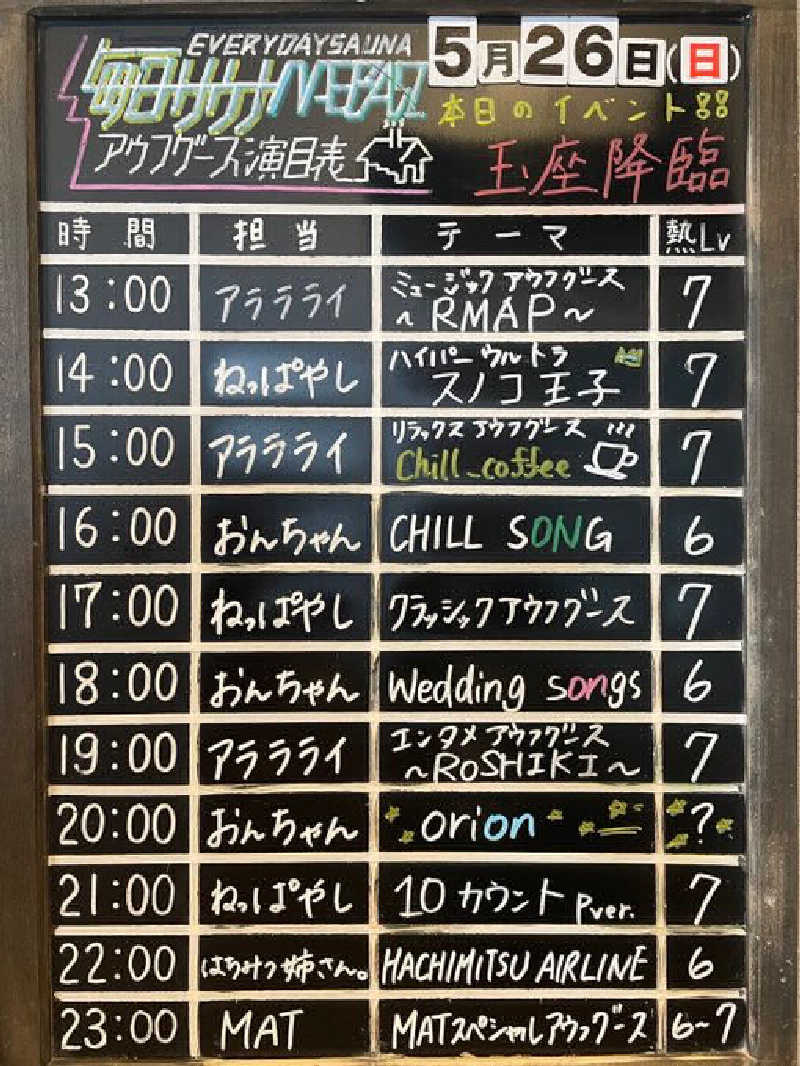 EVERYDAYSAUNA
毎日サウナ
5月26日(日)
本日のイベント
アウフグース演目表
玉座降臨
時間 担当 テーマ 熱Lv
13:00 アララライ ミュージックアウフグース 7
~RMAP~
14:00 ねっぱやし ハイパーウルトラ 7
スノコ王子
15:00 アララライ リラックスアウフグース 7
Chill_coffee
16:00 おんちゃん CHILL SONG 6
17:00 ねっぱやし クラッシックアウフグース 7
18:00 おんちゃん Wedding songs 6
19:00 アララライ エンタメアウフグース 7
~ROSHIKI~
20:00 おんちゃん orion ?
21:00 ねっぱやし 10カウント Pver. 7
22:00 はちみつ姉さん。 HACHIMITSU AIRLINE 6
23:00 MAT MATスペシャルアウフグース 6~7